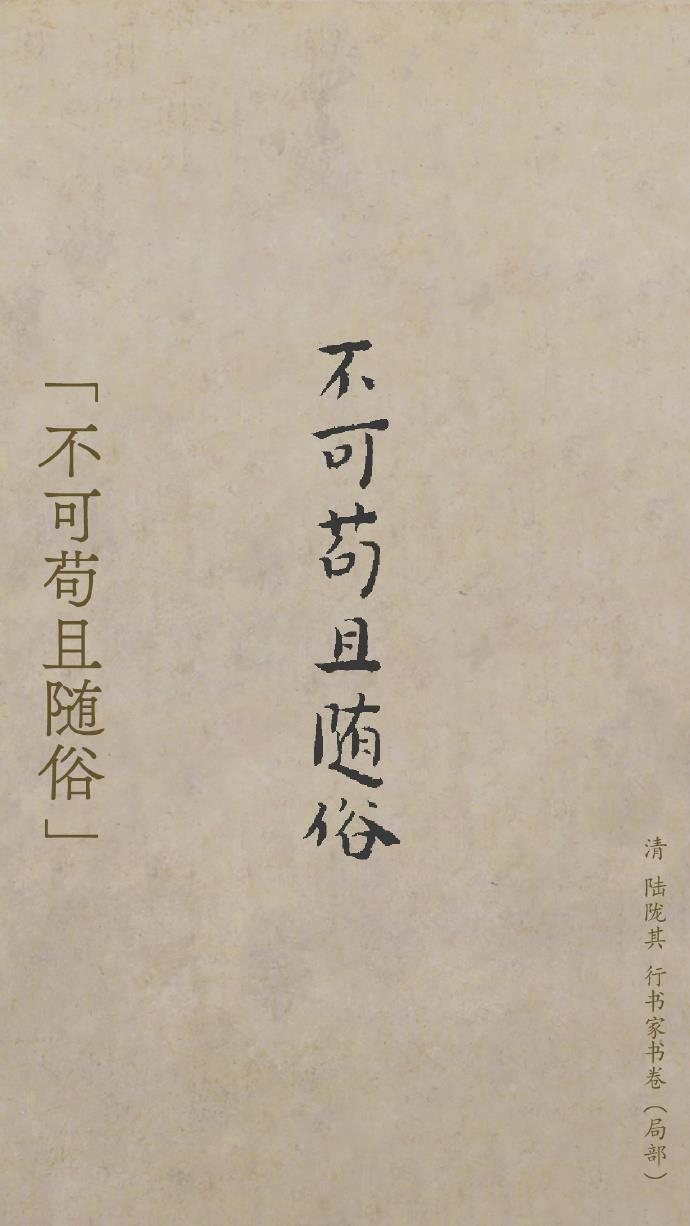 清 陆陇其 行书家书卷（局部）
不可苟且随俗
「不可苟且随俗」